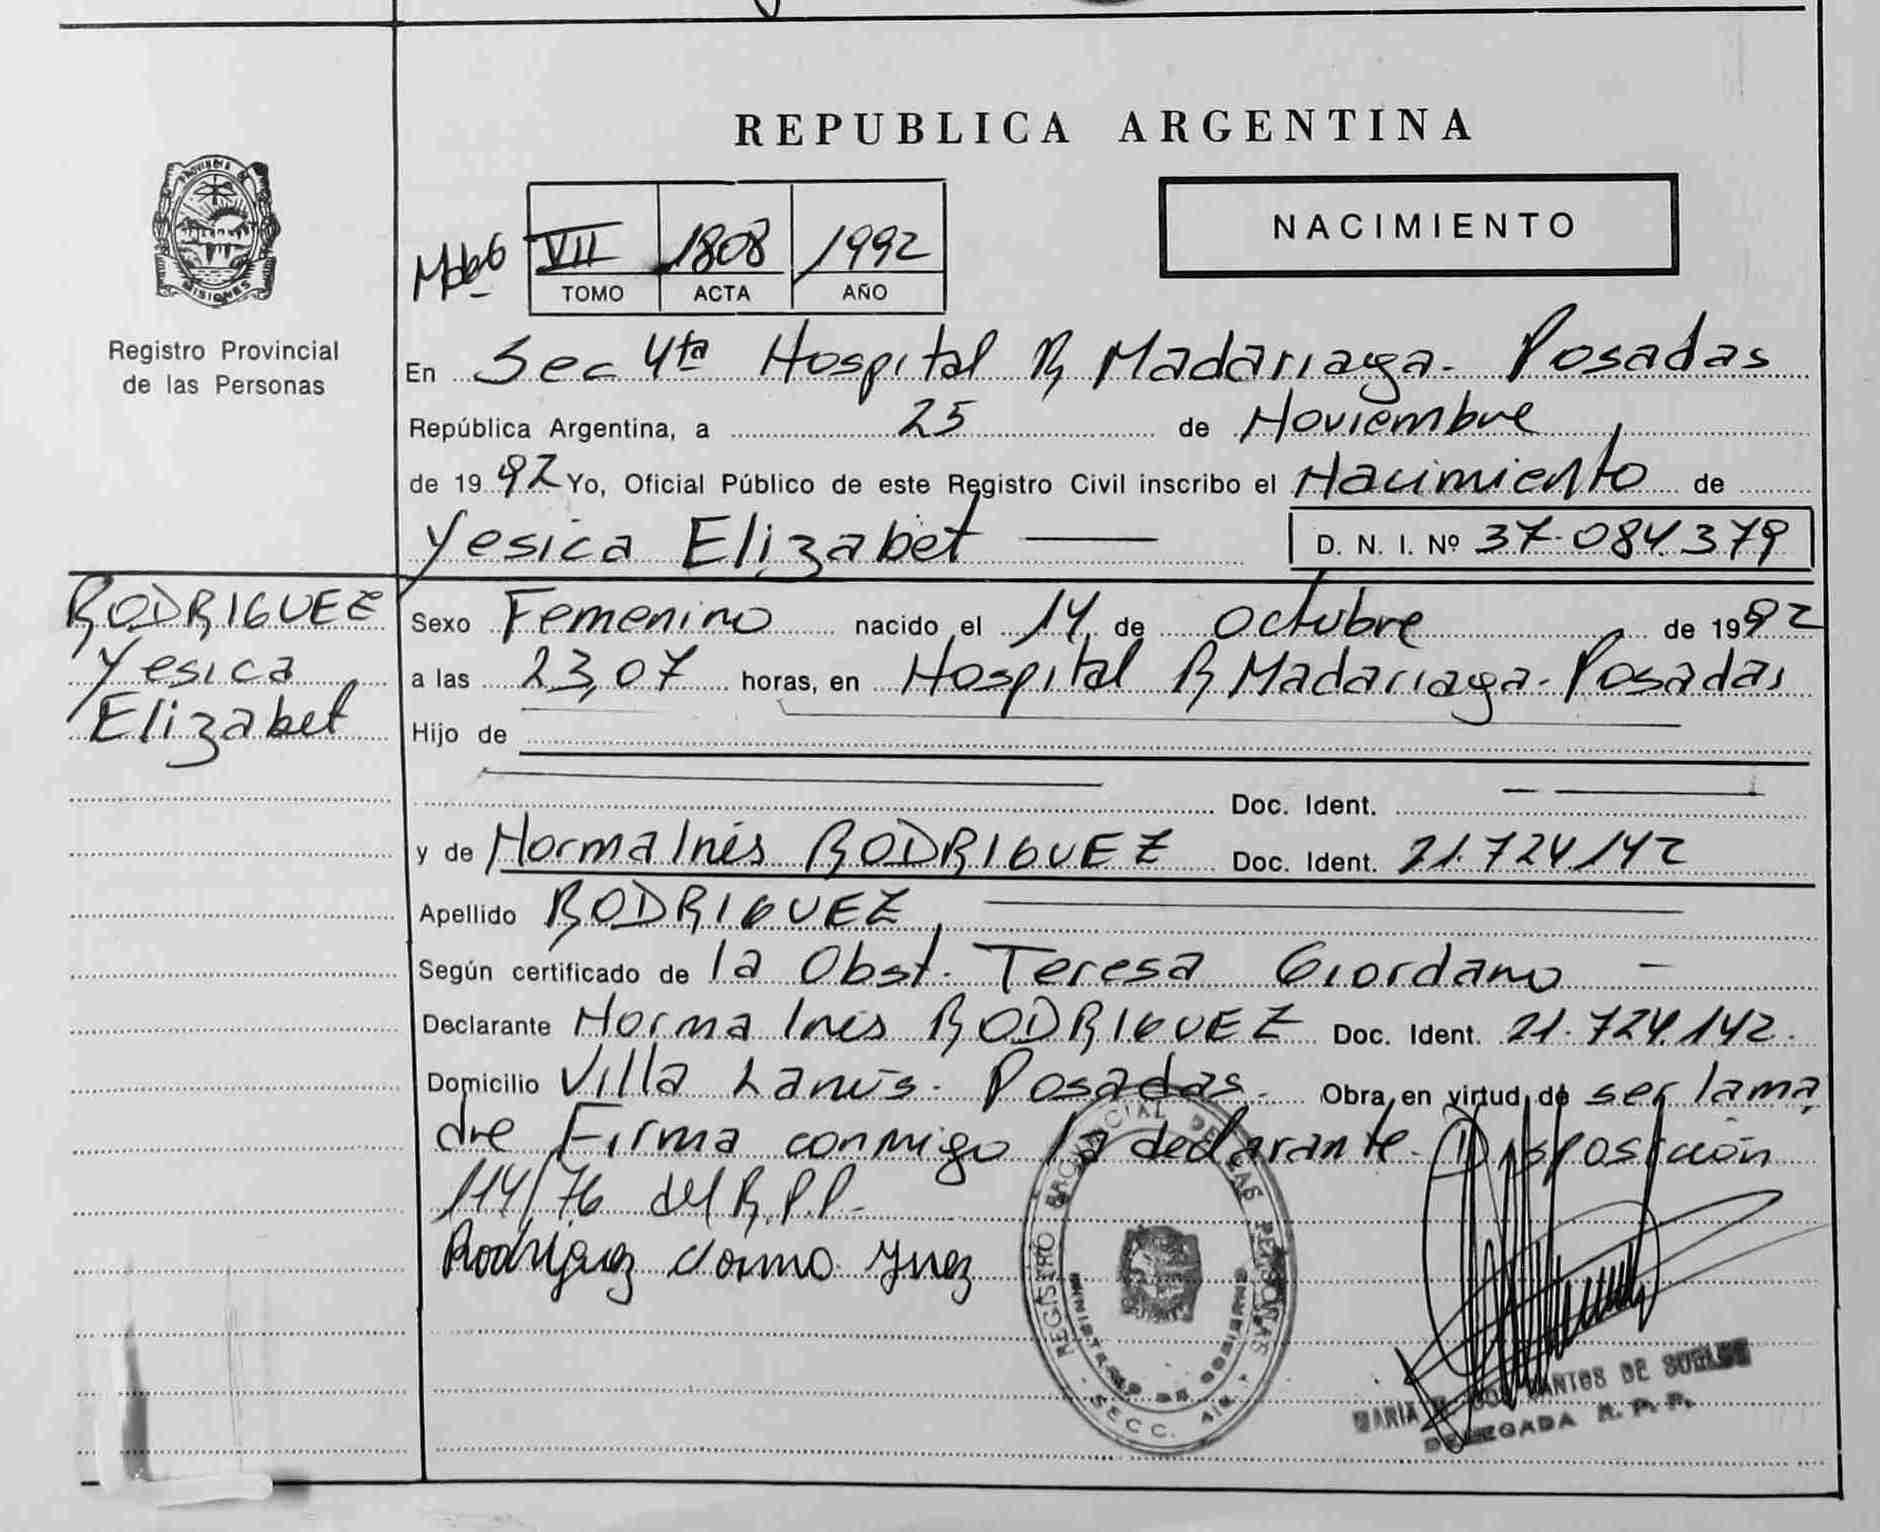 REPUBLICA ARGENTINA
PROVINCIA DE
MISIONES
Registro Provincial
de las Personas
NACIMIENTO
VII 1808 1992
TOMO ACTA AÑO
En Sec 4ta Hospital R Madariaga. Posadas
República Argentina, a 25 de Noviembre
de 1992 Yo, Oficial Público de este Registro Civil inscribo el Nacimiento de
Yesica Elizabet D. N. I. Nº 37.084.379
RODRIGUEZ
Yesica
Elizabet
Sexo Femenino nacido el 14 de octubre de 1992
a las 23,07 horas, en Hospital R Madariaga. Posadas
Hijo de
Doc. Ident.
y de Norma Inés RODRIGUEZ Doc. Ident. 21.724.142
Apellido RODRIGUEZ
Según certificado de la Obst. Teresa Giordano
Declarante Norma Inés RODRIGUEZ Doc. Ident. 21.724.142.
Domicilio Villa Lanús. Posadas. Obra en virtud de ser la ma
dre Firma conmigo la declarante. Disposición
114/76 del R.P.P.
Rodriguez Norma Ynez
REGISTRO PROVINCIAL DE LAS PERSONAS
MINISTERIO DE GOBIERNO
SECC.
MARIA SANTOS DE
DELEGADA R. P. P.